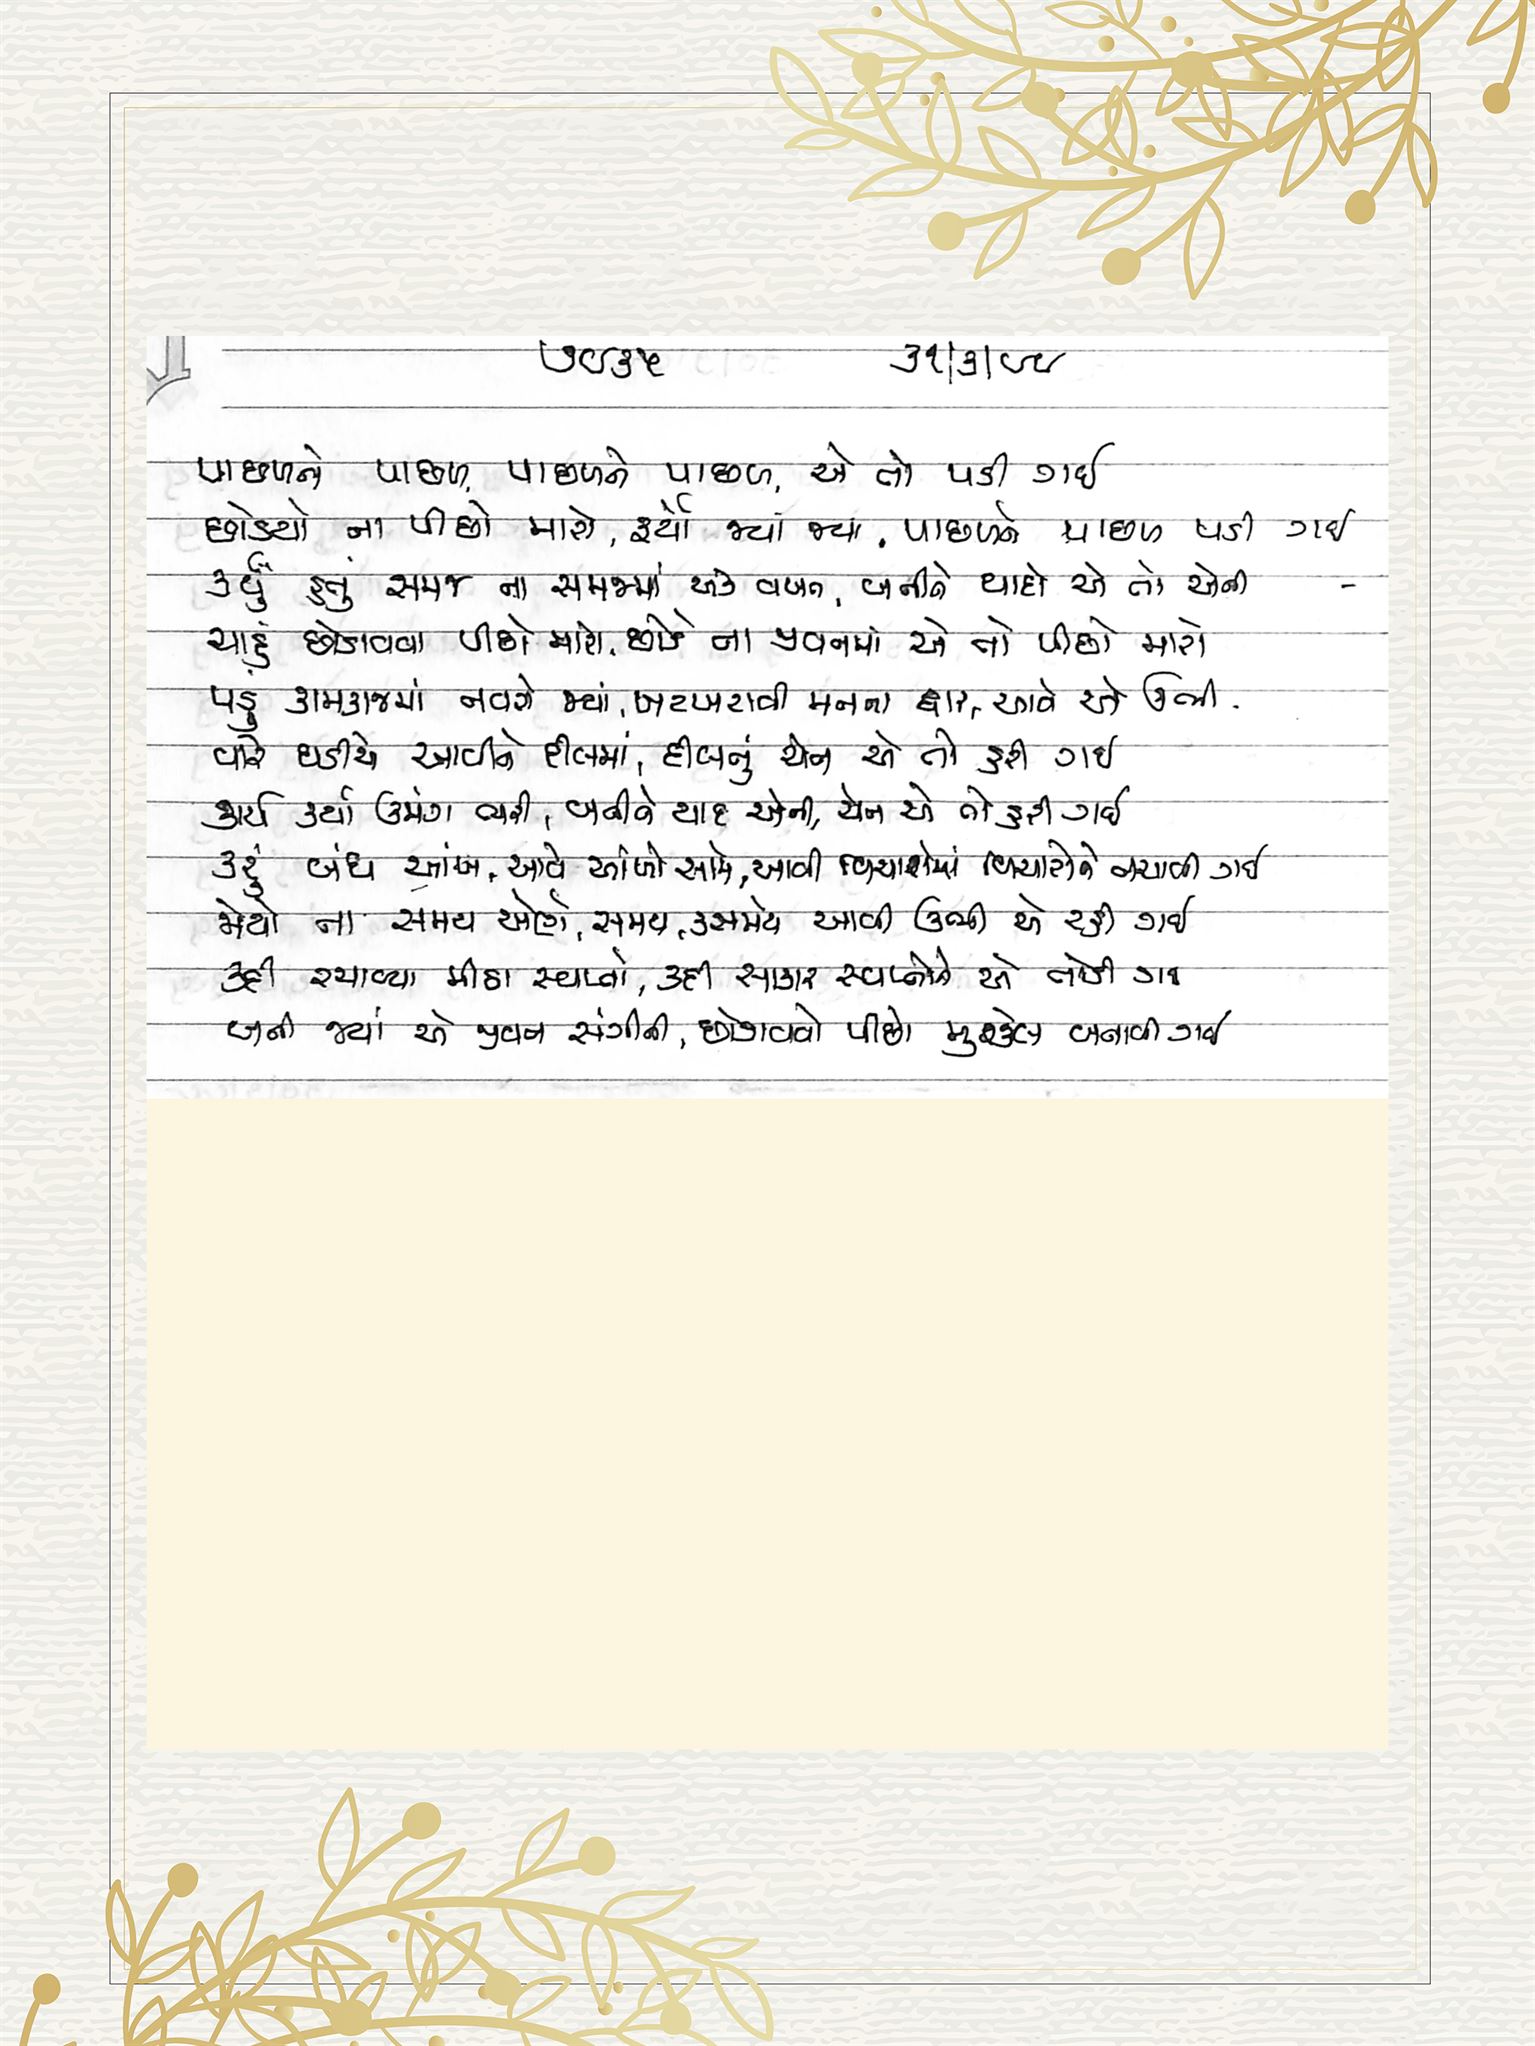 ૭૯૩૫ ૩૧/૩/૯૯
પાછળને પાછળ, પાછળને પાછળ, એ તો પડી ગઈ
છોડયો ના પીછો મારો, ફર્યો જ્યાં જ્યાં, પાછળને પાછળ પડી ગઈ
કર્યું હતું સમજ ના સમજમાં એક વખત, બનીને યાદો એ તો એની -
ચાહું છોડાવવા પીછો મારો, છોડે ના જીવનમાં એ તો પીછો મારો
પડું કામકાજમાં નવરો જ્યાં, ખટખટાવી મનના દ્વાર, આવે એ ઉભી.
વારે ઘડીયે આવીને દીલમાં, દીલનું ચેન એ તો હરી ગઈ
કાર્ય કર્યા ઉમંગ ભરી, બનીને યાદ એની, ચેન એ તો હરી ગઈ
કરું બંધ આંખ, આવે આંખો સામે, આવી વિચારોમાં વિચારોને નચાવી ગઈ
જોયો ના સમય એણે, સમય, કસમયે આવી ઉભી એ રહી ગઈ
કદી રચાવ્યા મીઠા સ્વપ્નો, કદી સાકાર સ્વપ્નોને એ તોડી ગઈ
બની જ્યાં એ જીવન સંગીની, છોડાવવો પીછો મુશ્કેલ બનાવી ગઈ